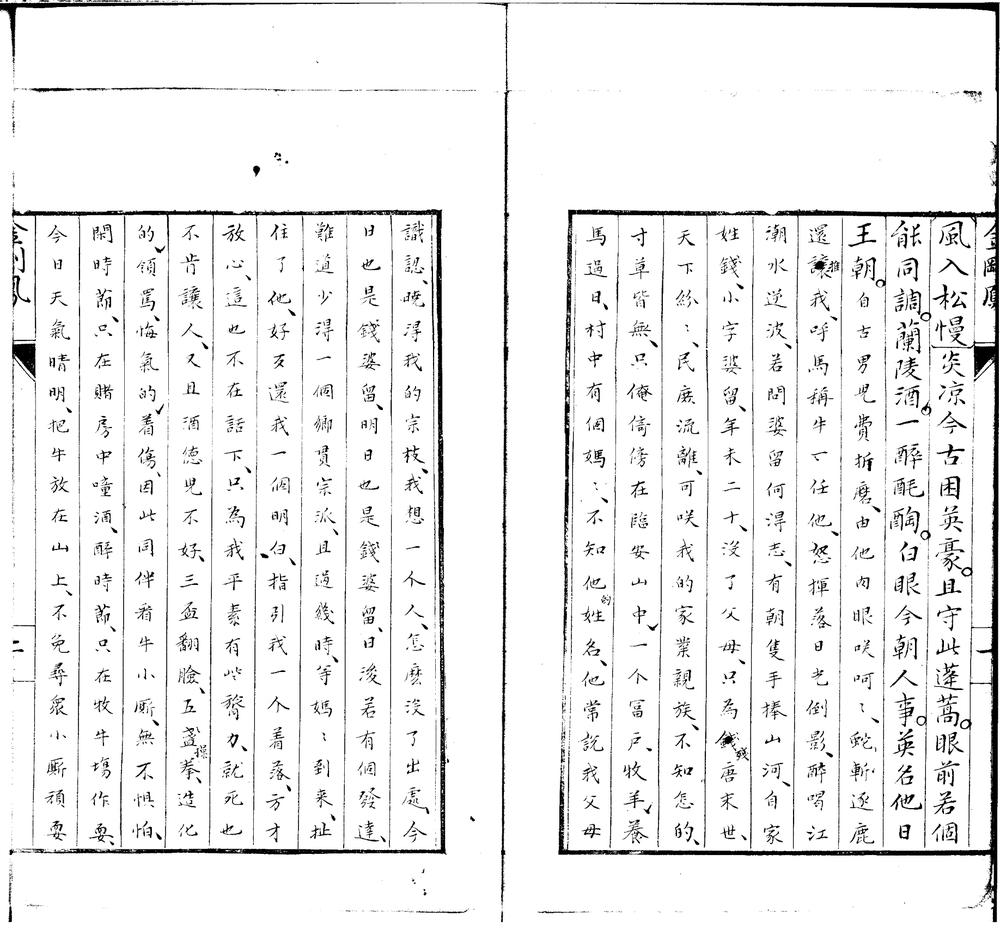 金剛鳳
風入松慢炎凉今古困英豪。且守此蓬蒿。眼前若個
能同調。蘭陵酒。一醉酕醄。白眼今朝人事。英名他日
王朝。自古男兒費折磨、由他肉眼咲呵〻、蛇斬逐鹿
還推我、呼馬稱牛一任他、怒揮落日光倒影、醉喝江
潮水逆波、若問婆留何淂志、有朝隻手捧山河、自家
姓錢、小字婆留、年未二十、沒了父母、只為殘唐末世、
天下紛〻、民庶流離、可咲我的家業親族、不知怎的、
寸草皆無、只俺倚傍在臨安山中、一个冨戶、牧羊、養
馬過日、村中有個媽〻、不知他的姓名、他常說我父母
識認、曉淂我的宗枝、我想一个人、怎麽沒了出處、今
日也是錢婆留、明日也是錢婆留、日後若有個發達、
難道少淂一個鄉貫宗派、且過幾時、等媽〻到来、扯
住了他、好歹還我一個明白、指引我一个着落、方才
放心、這也不在話下、只為我平素有些膂力、就死也
不肯讓人、又且酒德兒不好、三盃翻臉、五盞揮拳、造化
的、領罵、悔氣的、着傷、因此同伴看牛小厮、無不惧怕、
閑時節、只在賭房中噇酒、醉時節、只在牧牛塲作耍、
今日天氣晴明、把牛放在山上、不免尋衆小厮頑耍
金剛鳳
二